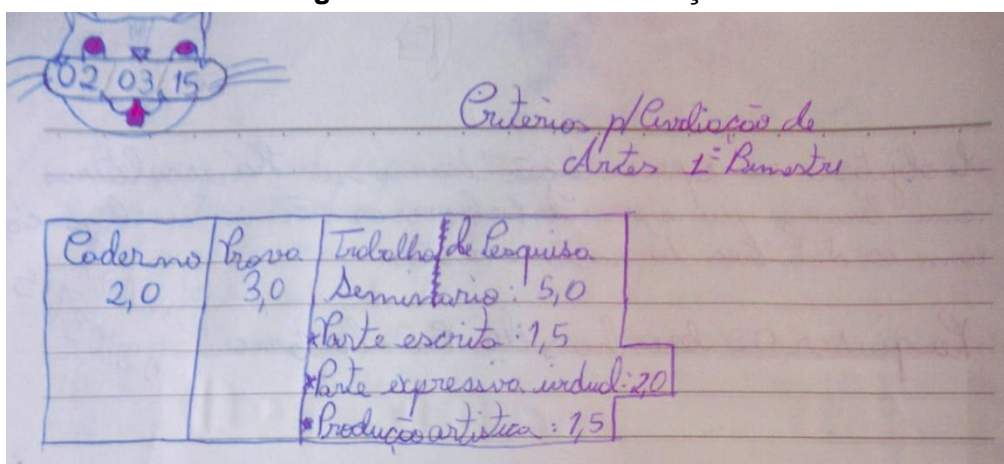 02/03/15
Critérios p/ Avaliação de
Artes 1º Bimestre
Caderno
2,0
Prova
3,0
Trabalho de Pesquisa
Seminário: 5,0
*Parte escrita: 1,5
*Parte expressiva indvdul: 2,0
*Produção artística: 1,5